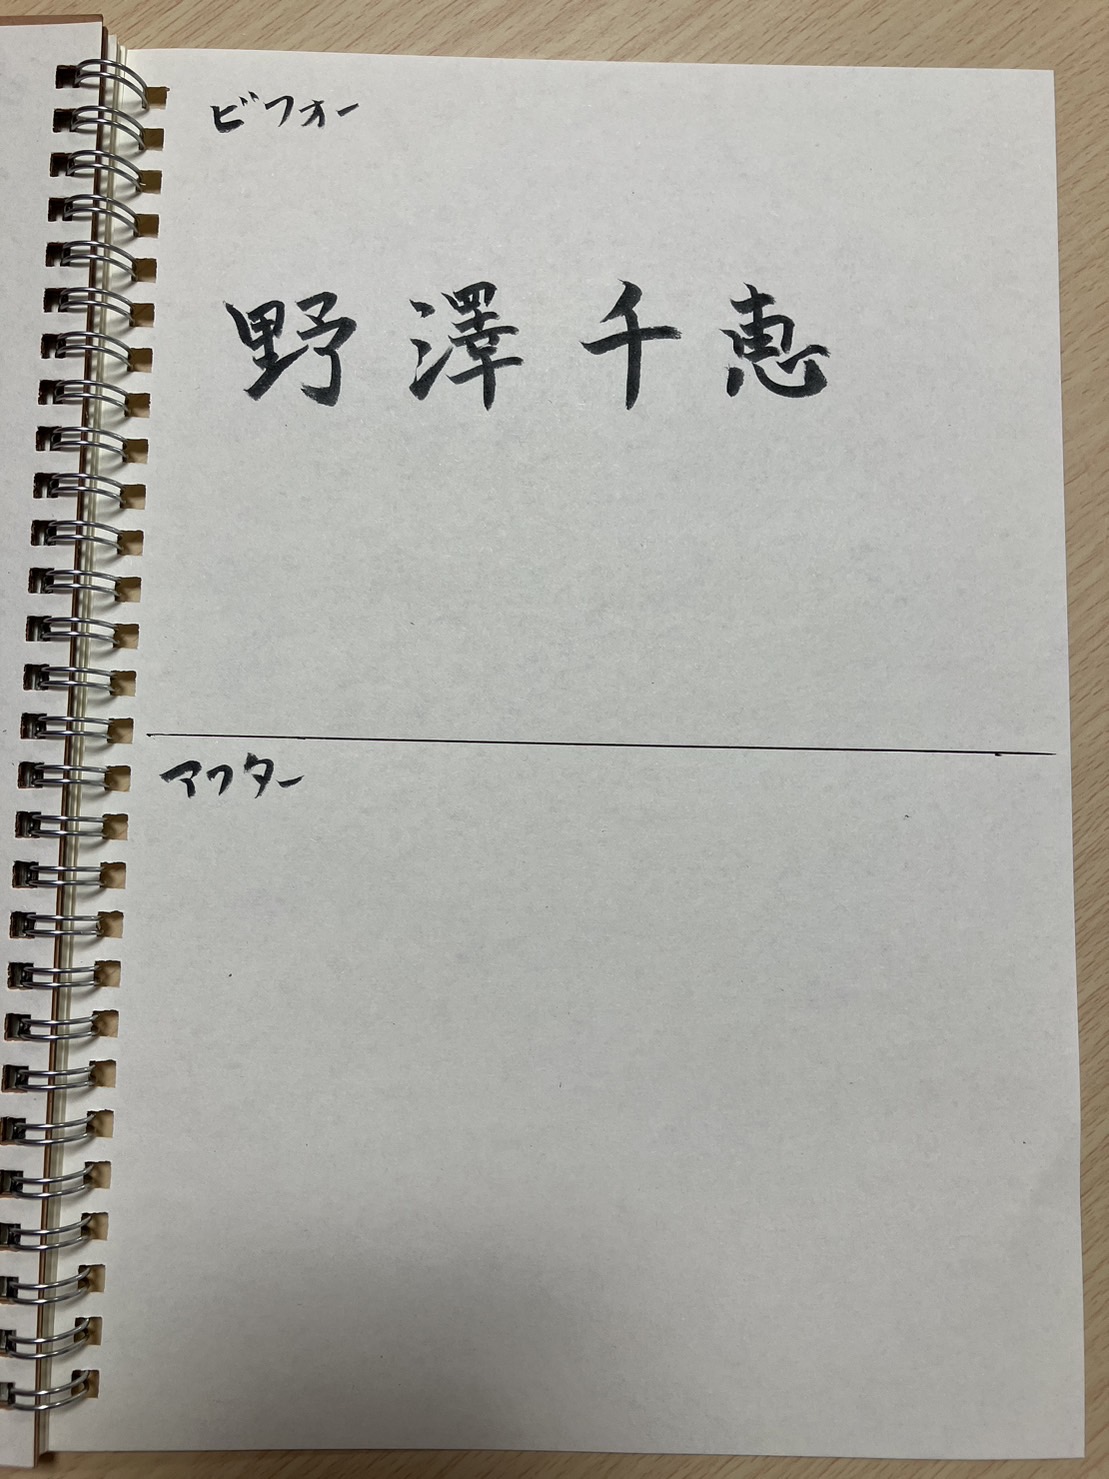 ビフォー
野澤千恵
アフター